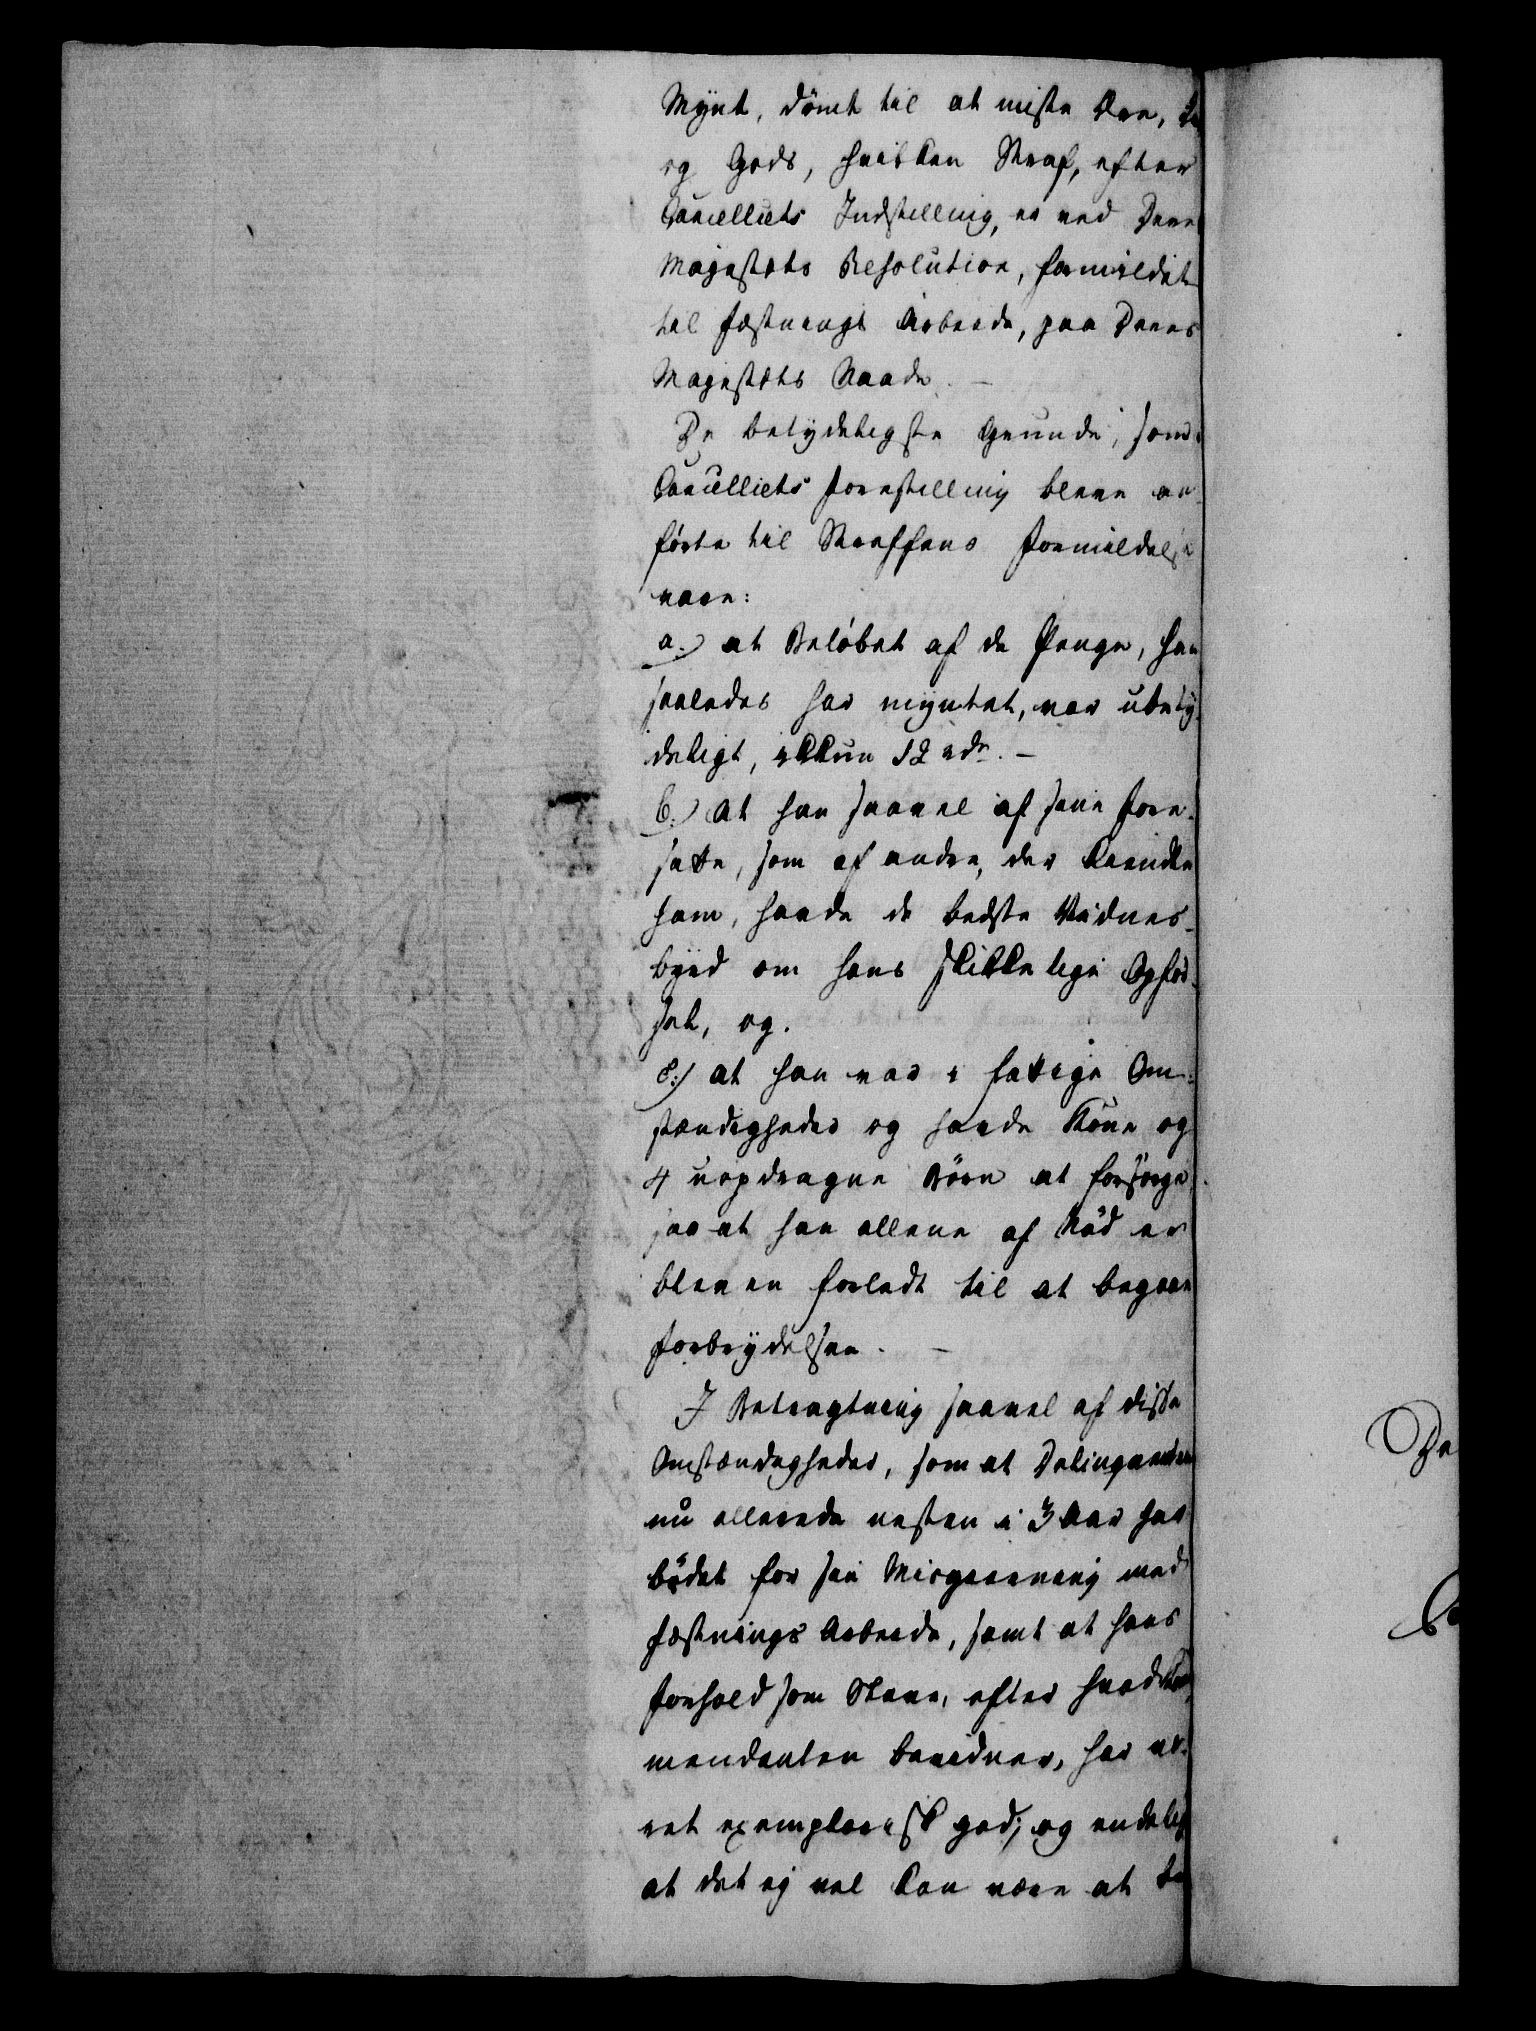 Mynt, dömt til at miste Ære,
og Gods, hvilken Straf, efter
Cancelliets Indstilling, er ved Deres
Majestæts Resolution, formildet
til Fæstnings Arbeide, paa Deres
Majestæts Naade. —
De betydeligste Grunde, som i
Cancelliets Forestilling bleve an-
førte til Straffens Formildelse
vare:
a.) at Beløbet af de Penge, han
saaledes har myntet, var ubety-
deligt, ikkun 12 rdr. —
b.) at han saavel af sine Fore-
satte, som af andre, der kiendte
ham, havde de bedste Vidnes-
byrd om hans skikkelige Opfør-
sel, og.
c.) at han var i fattige Om-
stændigheder og havde Kone og
4 uopdragne Börn at forsörge
saa at han allene af Nöd er
bleven forledt til at begaae
Forbrydelsen. —
I Betragtning saavel af disse
Omstændigheder, som at Delinqventen
nu allerede næsten i 3 Aar har
bödet for sin Misgierning med
Fæstnings Arbeide, samt at hans
Forhold som Slave, efter hvad Com-
mendanten bevidner, har væ-
ret exemplarisk god; og endelig
at det ej vel kan være at
De